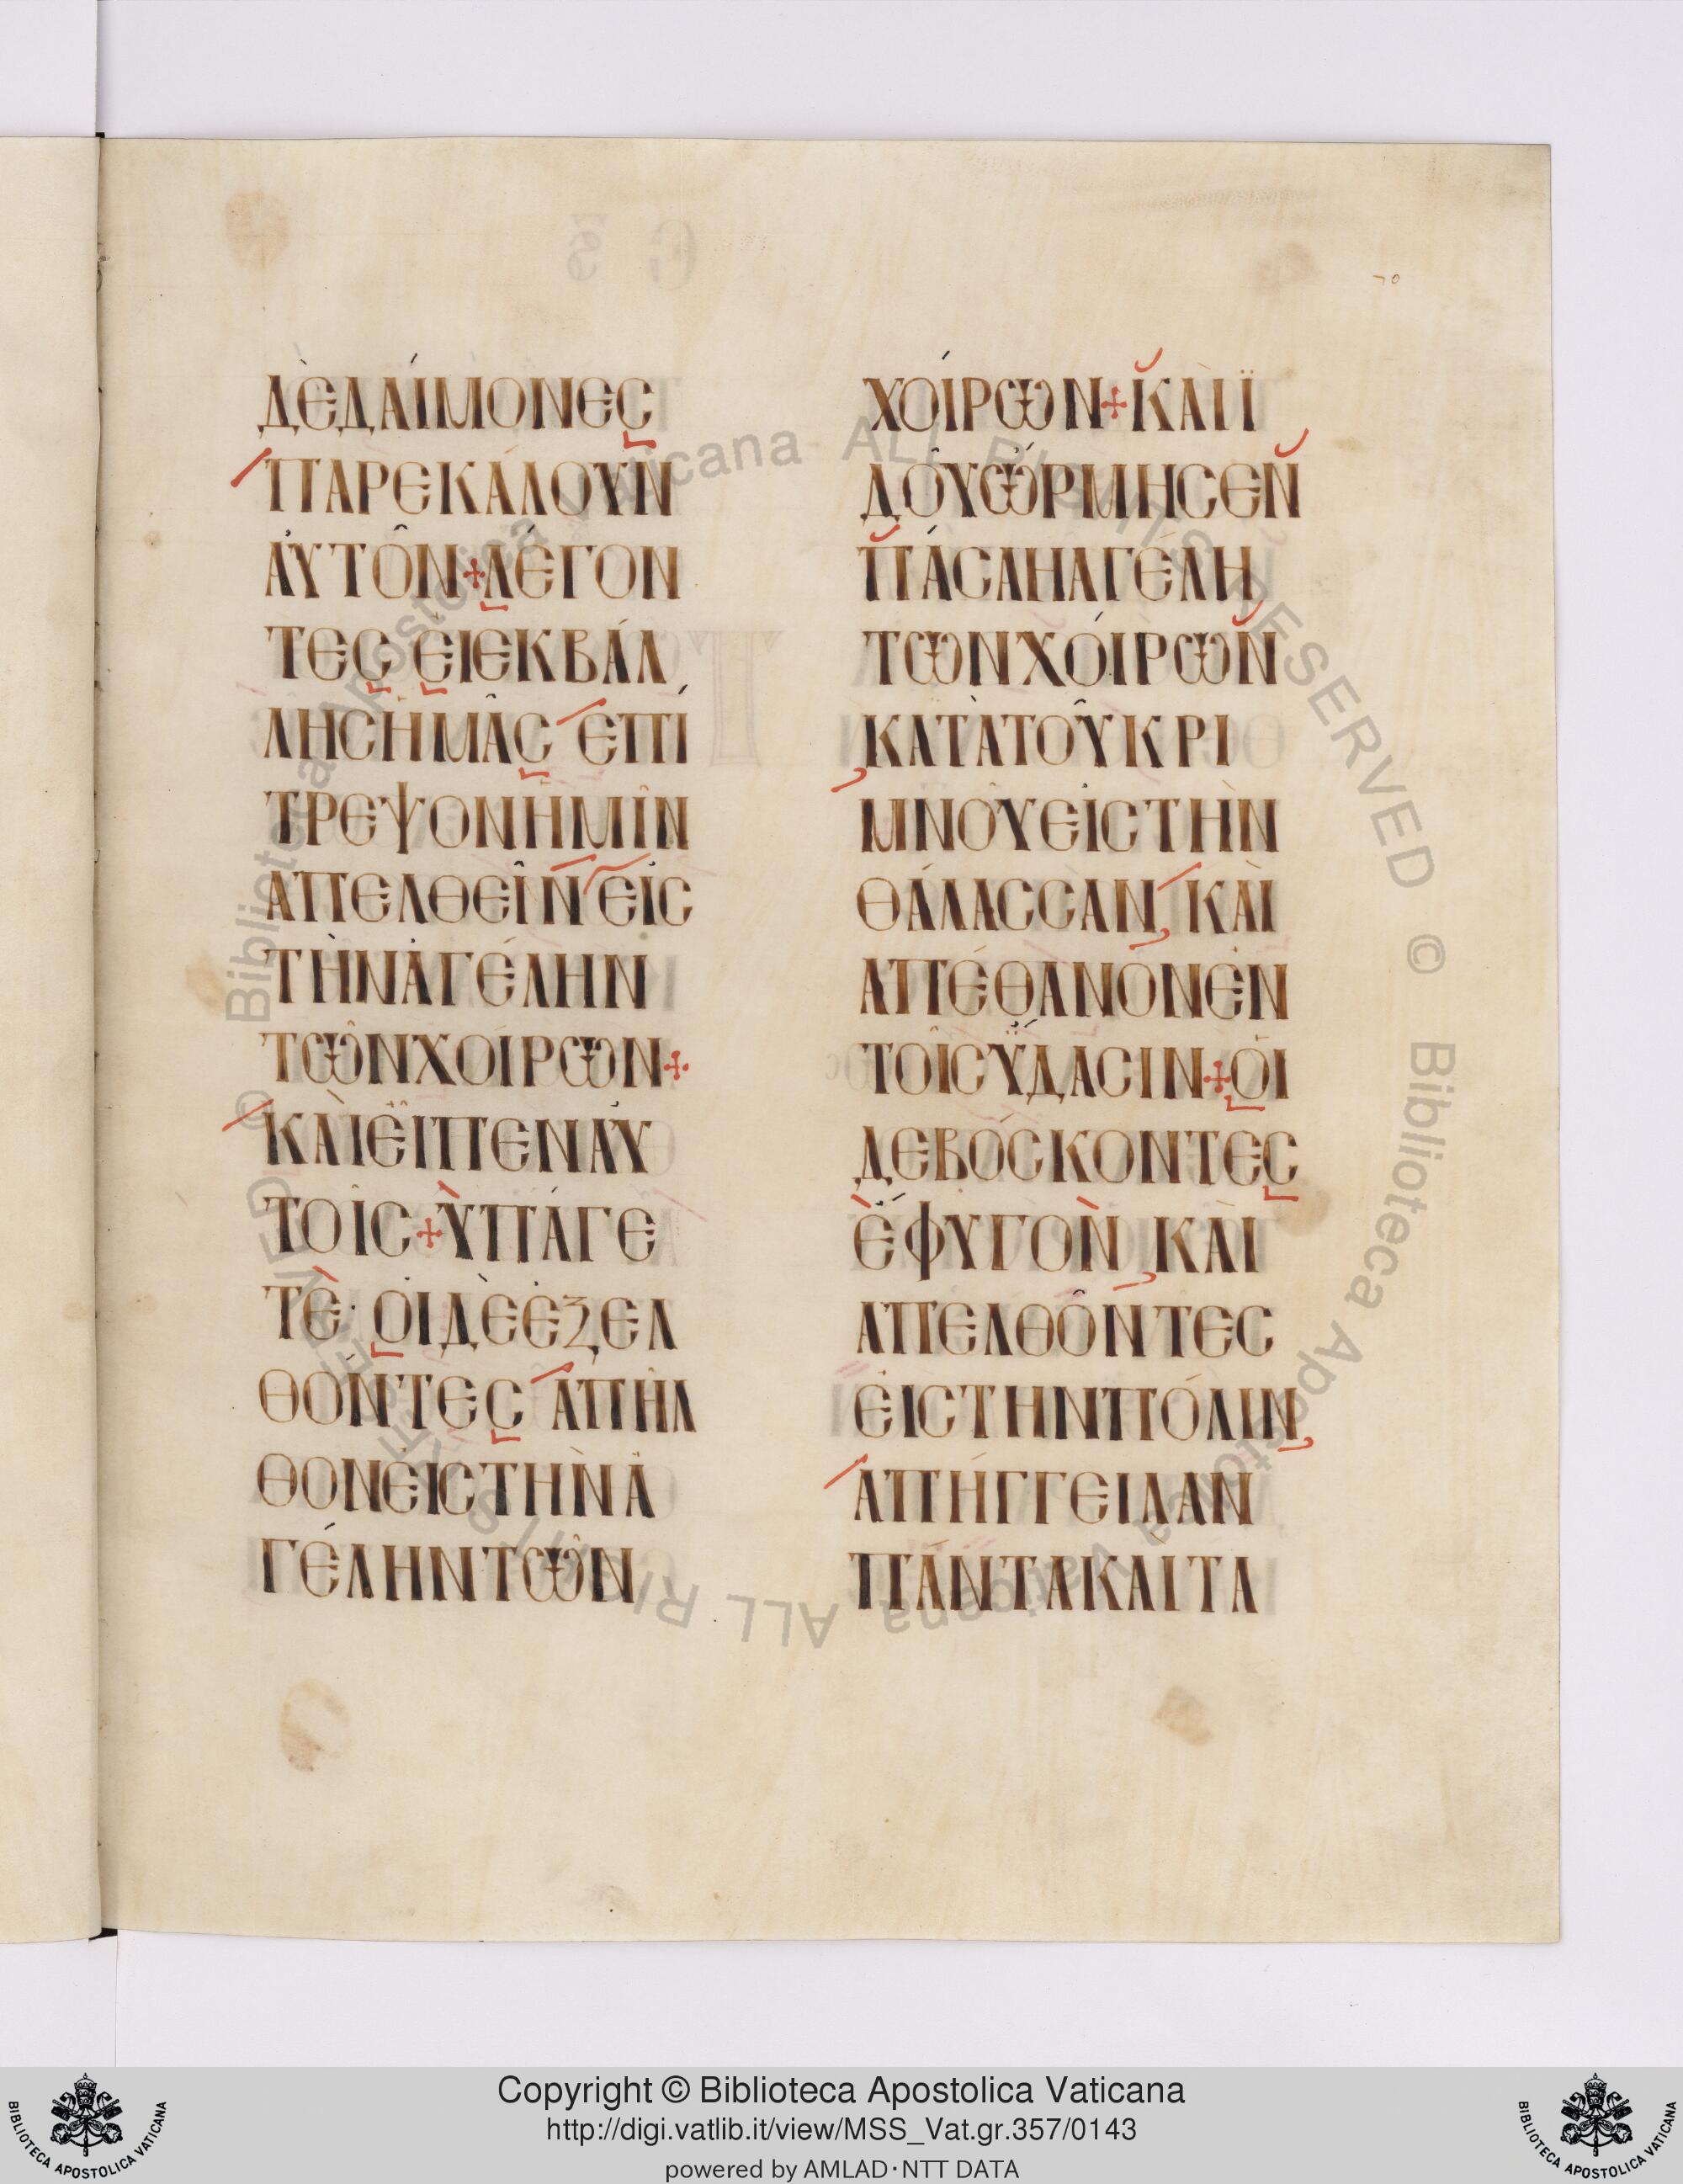 70
ΔὲΔΑίΜΟΝΕC
ΠΑΡΕΚΆΛΟΥΝ
ἈΥΤΟ͂Ν+ΛΈΓΟΝ
ΤΕC ΕἸΕΚΒΆΛ
ΛΗCἩΜΑ͂C ΕΠΊ
ΤΡΕΨΟΝἩΜΙ͂Ν
ΑΠΕΛΘΕΙ͂Ν ΕἸC
ΤῊΝἈΓΈΛΗΝ
ΤΩ͂ΝΧΟΊΡΩΝ+
ΚΑῚΕἾΠΕΝΑΥ̓
ΤΟΙ͂C+ΥΠΆΓΕ
ΤΕ· ΟἹΔΕἘΞΕΛ
ΘΌΝΤΕC ἈΠΗ͂Λ
ΘΟΝΕἸCΤῊΝἈ
ΓΈΛΗΝΤΩ͂Ν
ΧΟΊΡΩΝ+ΚΑῚΪ
ΔΟῪὭΡΜΗCΕΝ
ΠΆCΑΗΑΓΈΛΗ
ΤΩΝΧΟΊΡΩΝ
ΚΑΤᾺΤΟΥ͂ΚΡΙ
ΜΝΟΥ͂ΕἸCΤῊΝ
ΘΆΛΑCCΑΝ, ΚΑῚ
ΑΠΈΘΑΝΟΝἘΝ
ΤΟΙ͂CΫΔΑCΙΝ+ΟἹ
ΔΕΒΌCΚΟΝΤΕC
ἜΦΥΓΟΝ, ΚΑῚ
ΑΠΕΛΘΌΝΤΕC
ἘΙCΤΗΝΠΌΛΙΝ,
ΑΠΉΓΓΕΙΛΑΝ
ΠΆΝΤΑΚΑΙΤΑ
© Biblioteca Apostolica Vaticana ALL RIGHTS RESERVED © Biblioteca Apostolica Vaticana ALL RIGHTS RESERVED
Copyright © Biblioteca Apostolica Vaticana
http://digi.vatlib.it/view/MSS_Vat.gr.357/0143
powered by AMLAD·NTT DATA
BIBLIOTECA APOSTOLICA VATICANA
BIBLIOTECA APOSTOLICA VATICANA